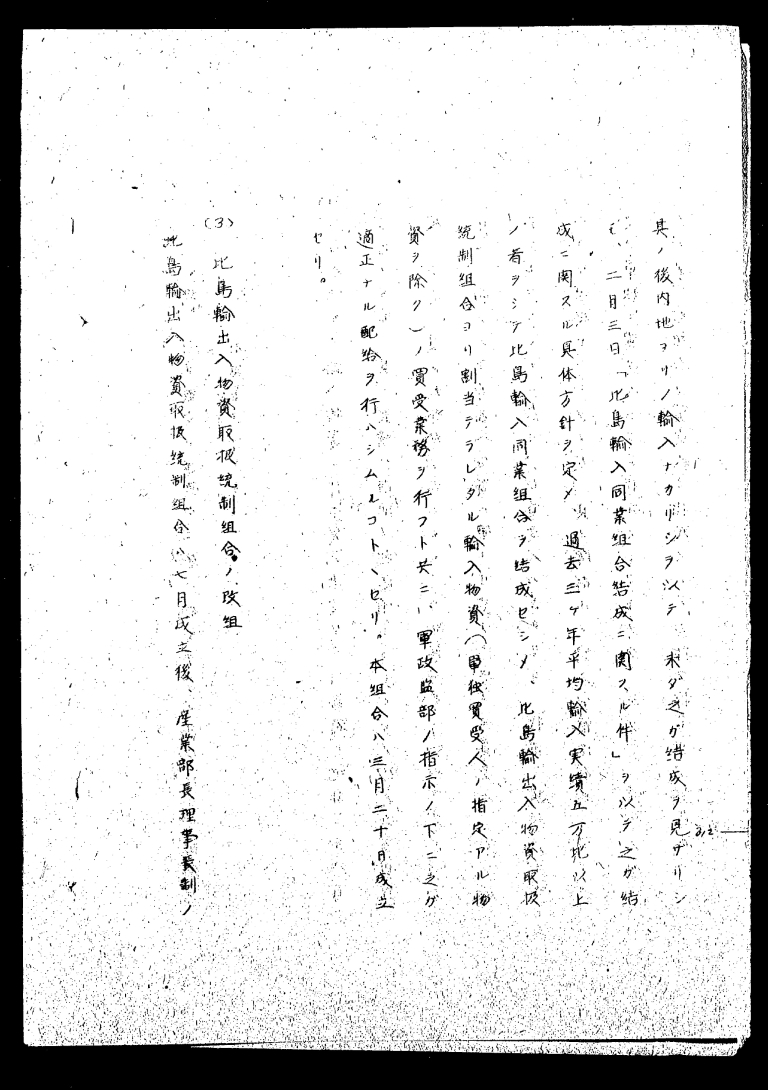 其ノ後内地ヨリノ輸入ナカリシヲ以テ 未ダ之ガ結成ヲ見ザリシ
モ 二月三日「比島輸入同業組合結成ニ関スル件」ヲ以テ之ガ結
成ニ関スル具体方針ヲ定メ、過去三ケ年平均輸入実績五万比以上
ノ者ヲシテ比島輸入同業組合ヲ結成セシメ、比島輸出入物資取扱
統制組合ヨリ割当テラレタル輸入物資(単独買受人ノ指定アル物
資ヲ除ク)ノ買受業務ヲ行フト共ニ、軍政監部ノ指示ノ下ニ之ガ
適正ナル配給ヲ行ハシムルコトヽセリ。本組合ハ三月二十日成立
セリ。
(3) 比島輸出入物資取扱統制組合ノ改組
比島輸出入物資取扱統制組合ハ七月成立後、産業部長理事長制ノ